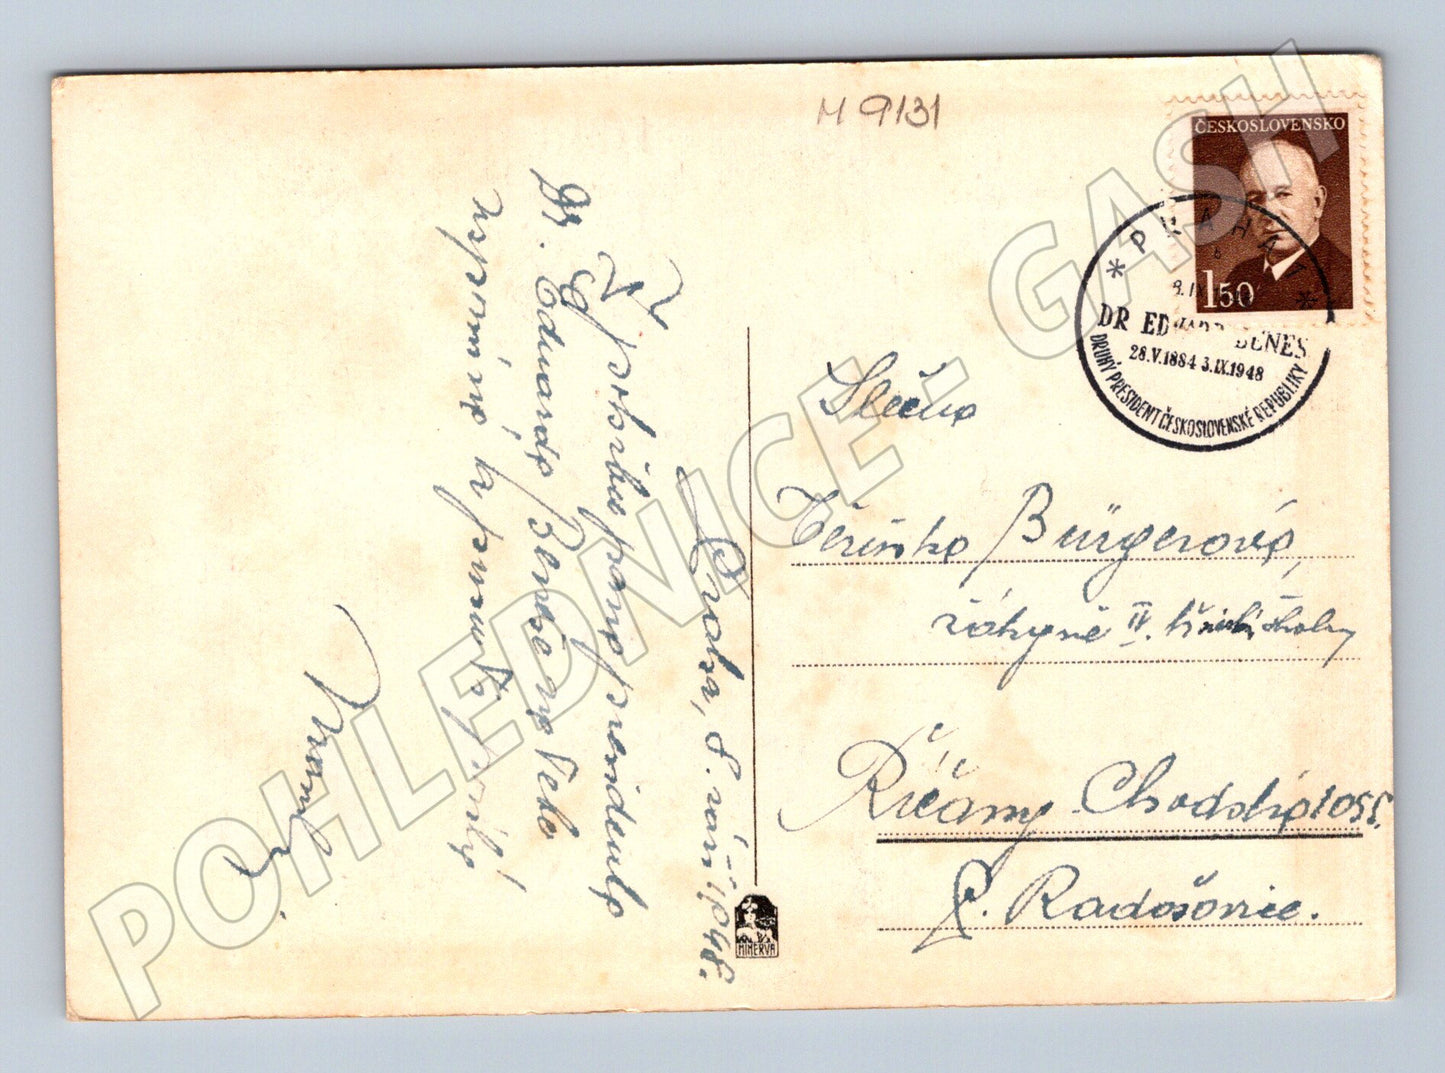 M 9131
ČESKOSLOVENSKO
150
* PRAHA 1 *
DR EDVARD BENEŠ
28.V.1884 3.IX.1948
DRUHÝ PRESIDENT ČESKOSLOVENSKÉ REPUBLIKY
Praha, 8. září 1948.
Z pohřbu pana presidenta
Dr. Edvarda Beneše Tobě
na upomínku
Slečna
Věrinka Bürgerová,
žákyně IV. tř. školy
Říčany Chodská 1055.
p. Radošovice.
MINERVA
POHLEDNICE - GASH